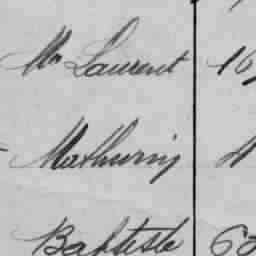 Mn Laurent 16
Mathurin 4
Baptiste 63